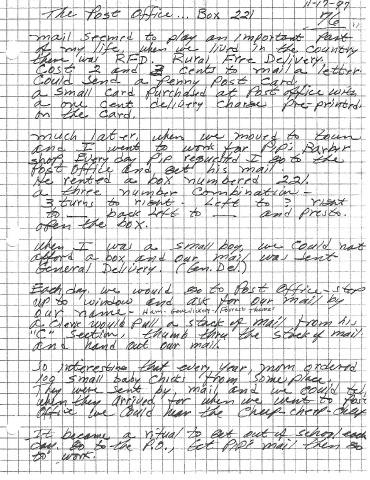 11-17-97
The Post Office... Box 221
mail seemed to play an important part
of my life, when we lived in the country
then was RFD. Rural Free Delivery.
Cost 2 and 3 cents to mail a letter
Could send a Penny Post Card.
a small card purchased at Post office with
a one cent delivery charge pre-printed
on the card.
much later, when we moved to town
and I went to work for Pip's Barber
shop. Every day Pip requested I go to the
Post Office and get his mail.
He rented a box numbered 221.
a three number combination -
3 turns to right - Left to ? right
to __ back left to __ and presto.
open the box.
when I was a small boy, we could not
afford a box and our mail was sent
General Delivery. (Gen. Del.)
Each day we would go to Post Office - step
up to window and ask for our mail by
our name -
a clerk would pull a stack of mail from his
"C" section, thumb thru the stack of mail
and hand out our mail.
so interesting that every year, mom ordered
100 small baby chicks from some place.
They were sent by mail and we could tell
when they arrived for when we went to Post
Office we could hear the cheep-cheep-cheep
It became a ritual to get out of school each
day. go to the P.O., get Pip's mail then go
to work.